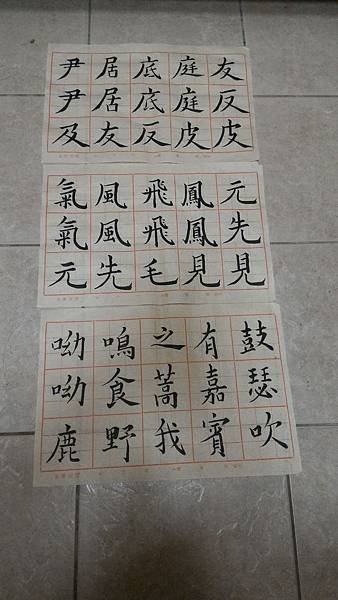 尹尹及
居居友
底底反
庭庭皮
友反皮
氣氣元
風風先
飛飛毛
鳳鳳見
元先見
呦呦鹿
鳴食野
之蒿我
有嘉賓
鼓瑟吹